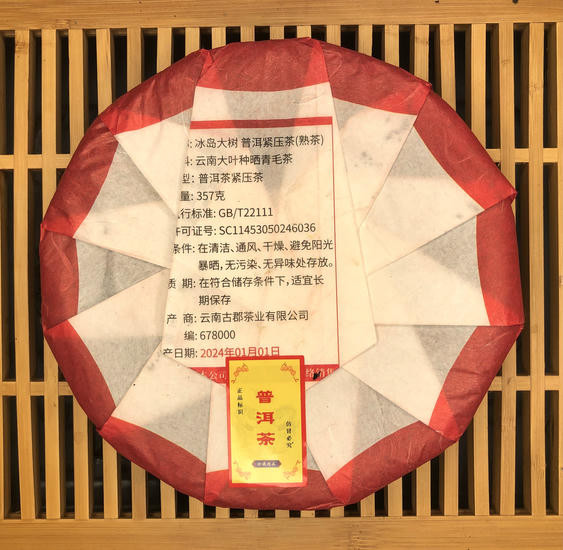 : 冰岛大树 普洱紧压茶(熟茶)
: 云南大叶种晒青毛茶
型: 普洱茶紧压茶
量: 357克
行标准: GB/T22111
许可证号: SC11453050246036
条件: 在清洁、通风、干燥、避免阳光
暴晒,无污染、无异味处存放。
质 期: 在符合储存条件下,适宜长
期保存
产 商: 云南古郡茶业有限公司
编: 678000
产日期: 2024年01月01日
公司
销售
正品标识
普洱茶
仿冒必究